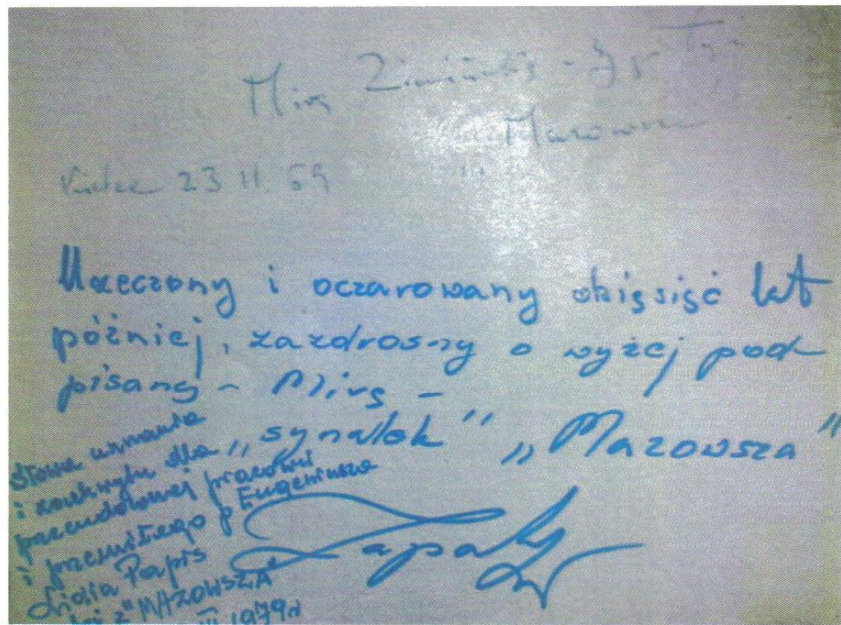 Mira Zimińska - Sygietyńska
Mazowsze
Kielce 23 II. 69
Urzeczony i oczarowany dzisięć lat
później, zazdrosny o wyżej pod
pisaną - Mirę -
„synalek” „Mazowsza”
Słowa uznania
i zachwytu dla
przeuzdolnionej pracowni
i przemiłego p. Eugeniusza
Lidia Papis
z "MAZOWSZA"
III 1979r